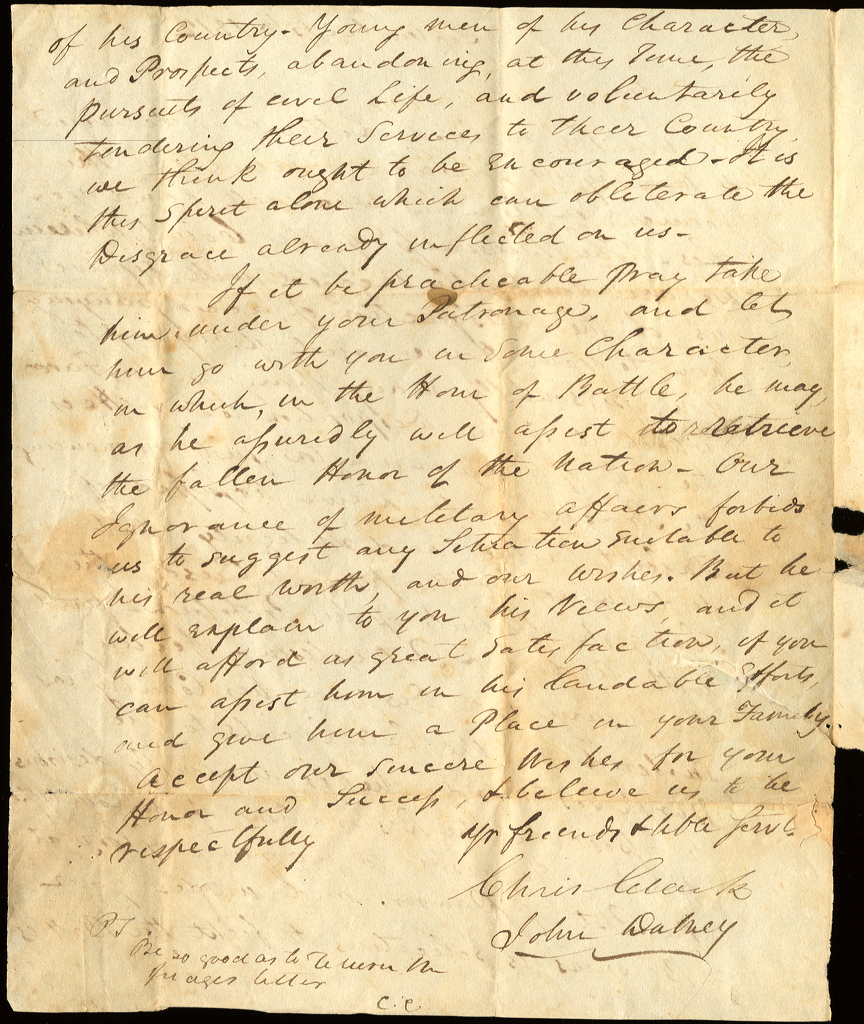 of his Country - Young men of his Character,
and Prospects, abandoning, at this Time, the
pursuits of civil Life, and voluntarily
tendering their Services to their Country,
we think ought to be encouraged - It is
this Spirit alone which can obliterate the
Disgrace already inflicted on us -
If it be practicable pray take
him under your Patronage, and let
him go with you in Some Character,
in which, in the Hour of Battle, he may,
as he assuredly will assist to retrieve
the fallen Honor of the Nation - Our
Ignorance of military affairs forbids
us to suggest any Situation Suitable to
his real worth, and our wishes. But he
will explain to you his Views, and it
will afford us great Satisfaction, if you
can assist him in his laudable Efforts,
and give him a Place in your Family.
Accept our Sincere Wishes for your
Honor and Success, & believe us to be
respectfully yr friends & hble Servts
Chris Clark
John Dabney
PS
Be so good as to return the
letter
C.C